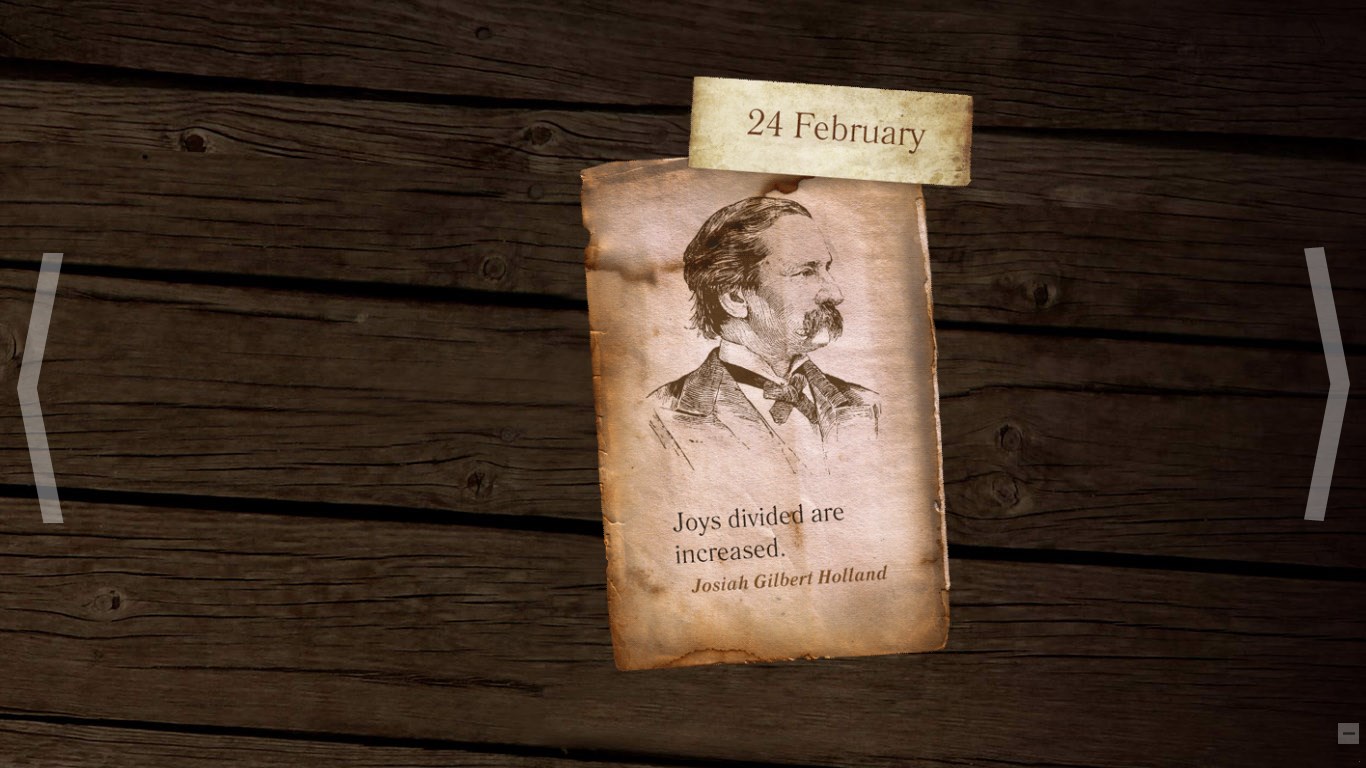 24 February
Joys divided are
increased.
Josiah Gilbert Holland